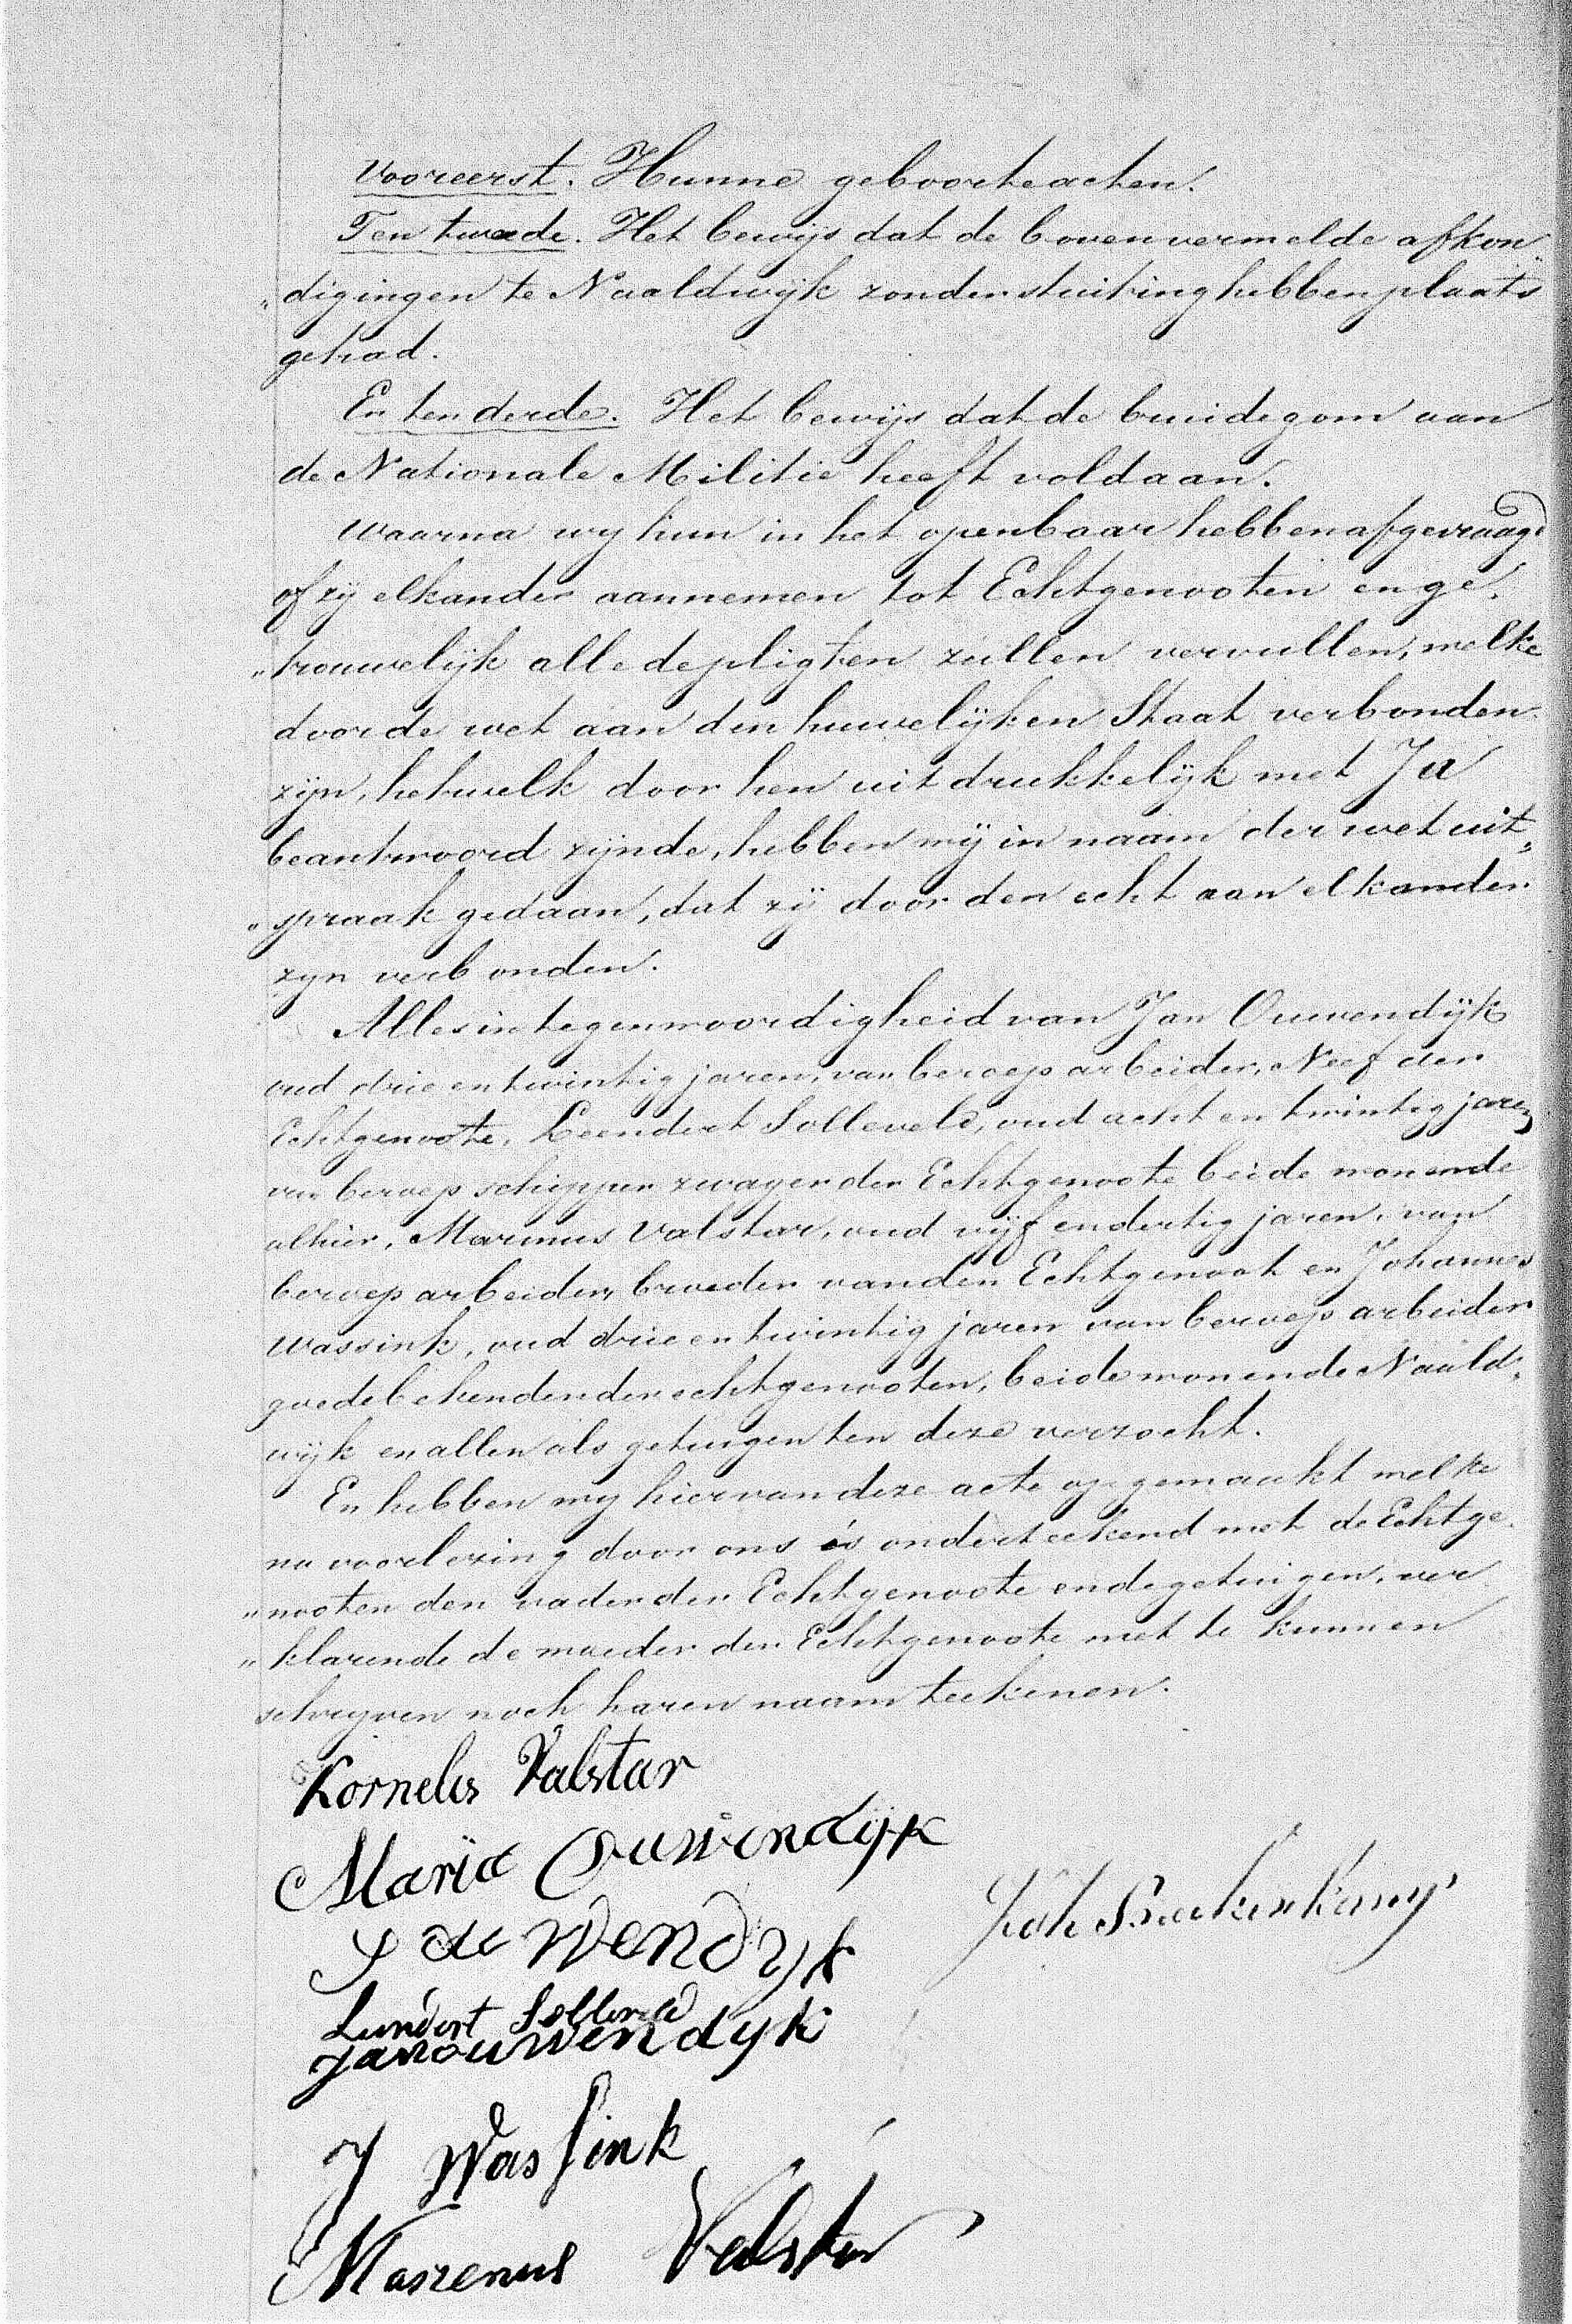 Vooreerst. Hunne geboorteacten.
Ten tweede. Het bewijs dat de bovenvermelde afkon„
„digingen te Naaldwijk zonder stuiting hebben plaats
gehad.
En ten derde. Het bewijs dat de bruidegom aan
de Nationale Militie heeft voldaan.
Waarna wy hun in het openbaar hebben afgevraagd
of zij elkander aannemen tot Echtgenooten en ge„
„trouwelijk alle de pligten zullen vervullen, welke
door de wet aan den huwelijken Staat verbonden
zijn, hetwelk door hen uitdrukkelijk met Ja
beantwoord zijnde, hebben wij in naam der wet uit„
„spraak gedaan, dat zij door den echt aan elkander
zyn verbonden.
Alles in tegenwoordigheid van Jan Ouwendijk
oud drie en twintig jaren, van beroep arbeider, Neef der
Echtgenoote, Leendert Solleveld, oud acht en twintig jaren
van beroep schipper zwager der Echtgenoote beide wonende
alhier, Marinus Valstar, oud vijf en dertig jaren, van
beroep arbeider, broeder van den Echtgenoot en Johannes
Wassink, oud drie en twintig jaren van beroep arbeider
goede bekenden der echtgenooten, beide wonende Naald„
wijk en allen als getuigen ten deze verzocht.
En hebben wy hiervan deze acte opgemaakt welke
na voorlezing door ons is onderteekend met de Echtge„
„nooten den vader der Echtgenoote en de getuigen, ver„
„klarende de moeder der Echtgenoote niet te kunnen
schryven noch haren naam teekenen.
Kornelis Valstar
Marija Ouwendijk
J ouwendyk
Leendert Solleveld
Jan ouwendyk
J Wassink
Marenus Valstar